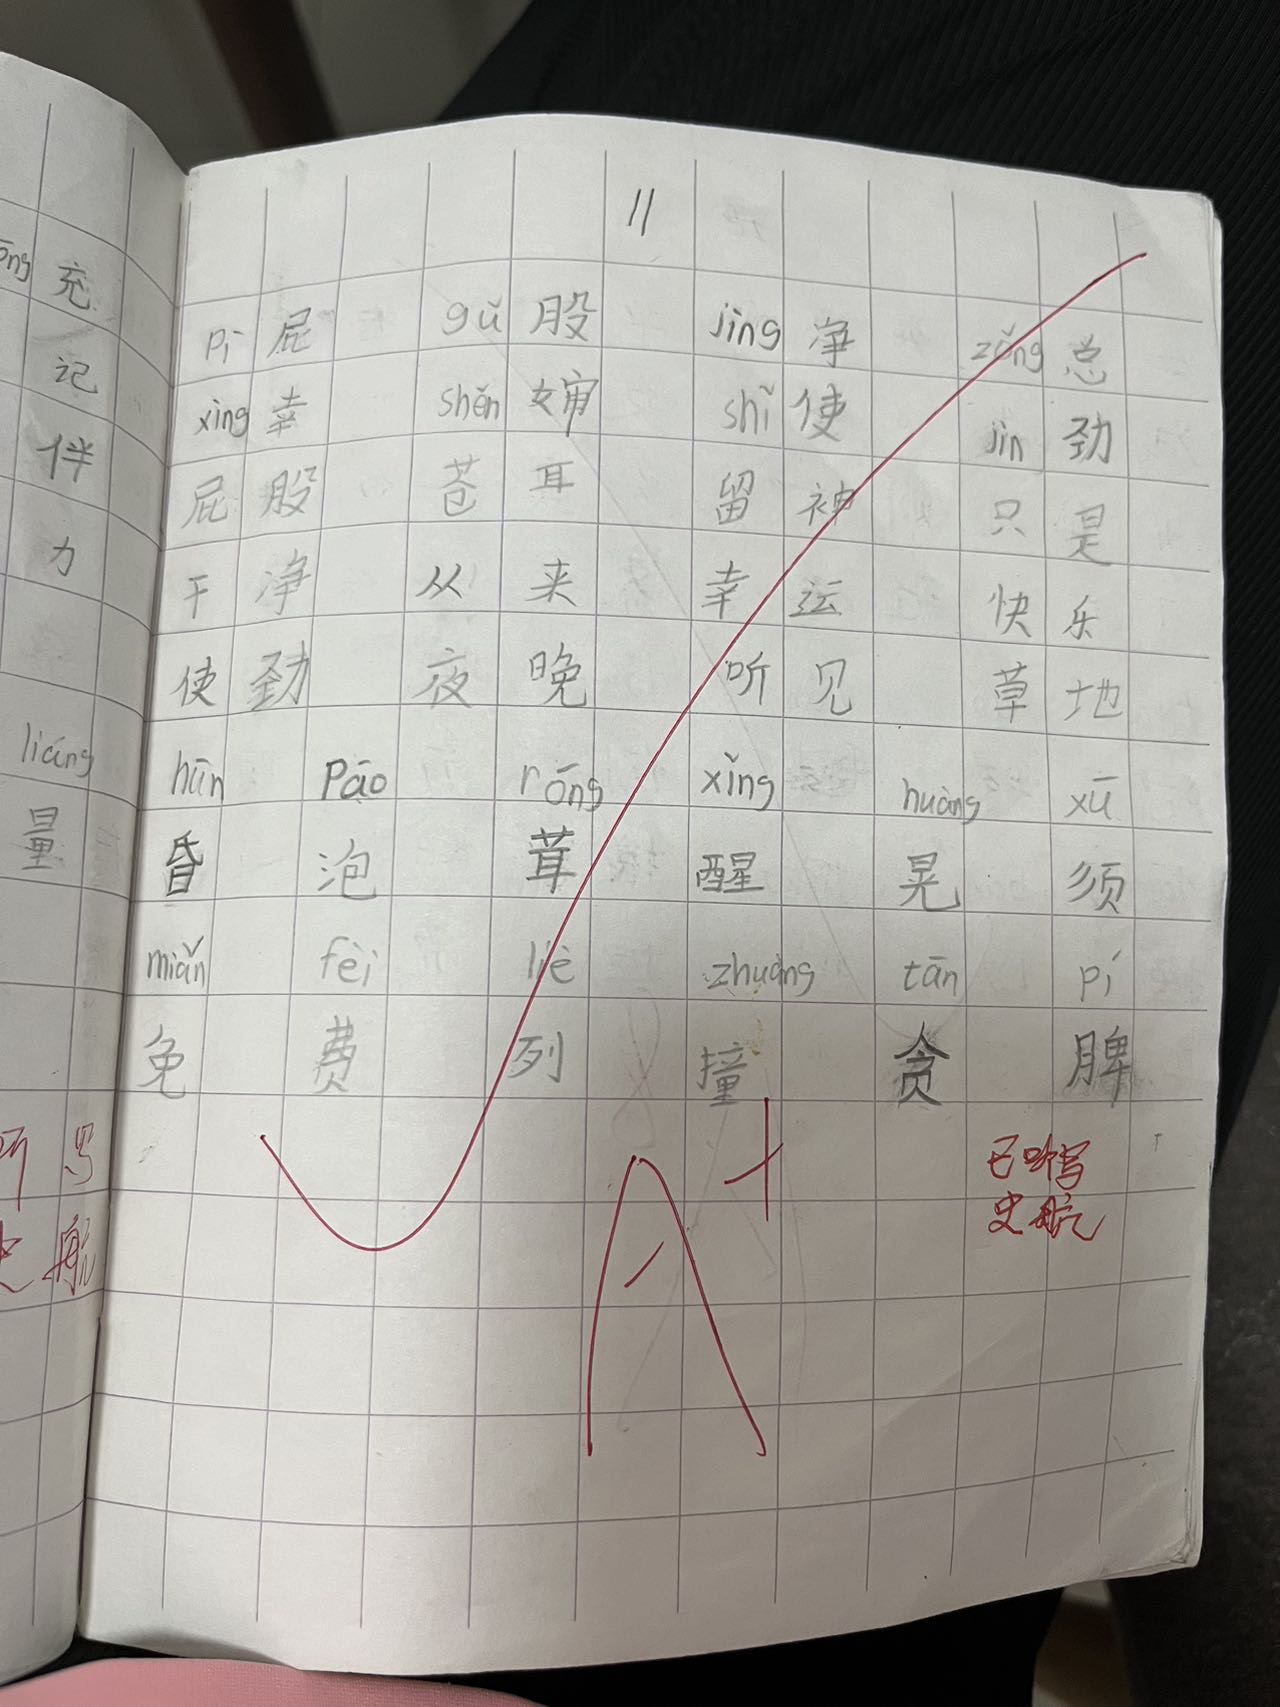 11
ōng 充
记
伴
力
liáng
量
听 写
史 航
pì 屁 gǔ 股 jìng 净 zǒng 总
xìng 幸 shěn 婶 shǐ 使 jìn 劲
屁股 苍耳 留神 只是
干净 从来 幸运 快乐
使劲 夜晚 听见 草地
hūn pāo róng xǐng huàng xū
昏 泡 茸 醒 晃 须
miǎn fèi liè zhuàng tān pí
免 费 列 撞 贪 脾
A+
已听写
史航